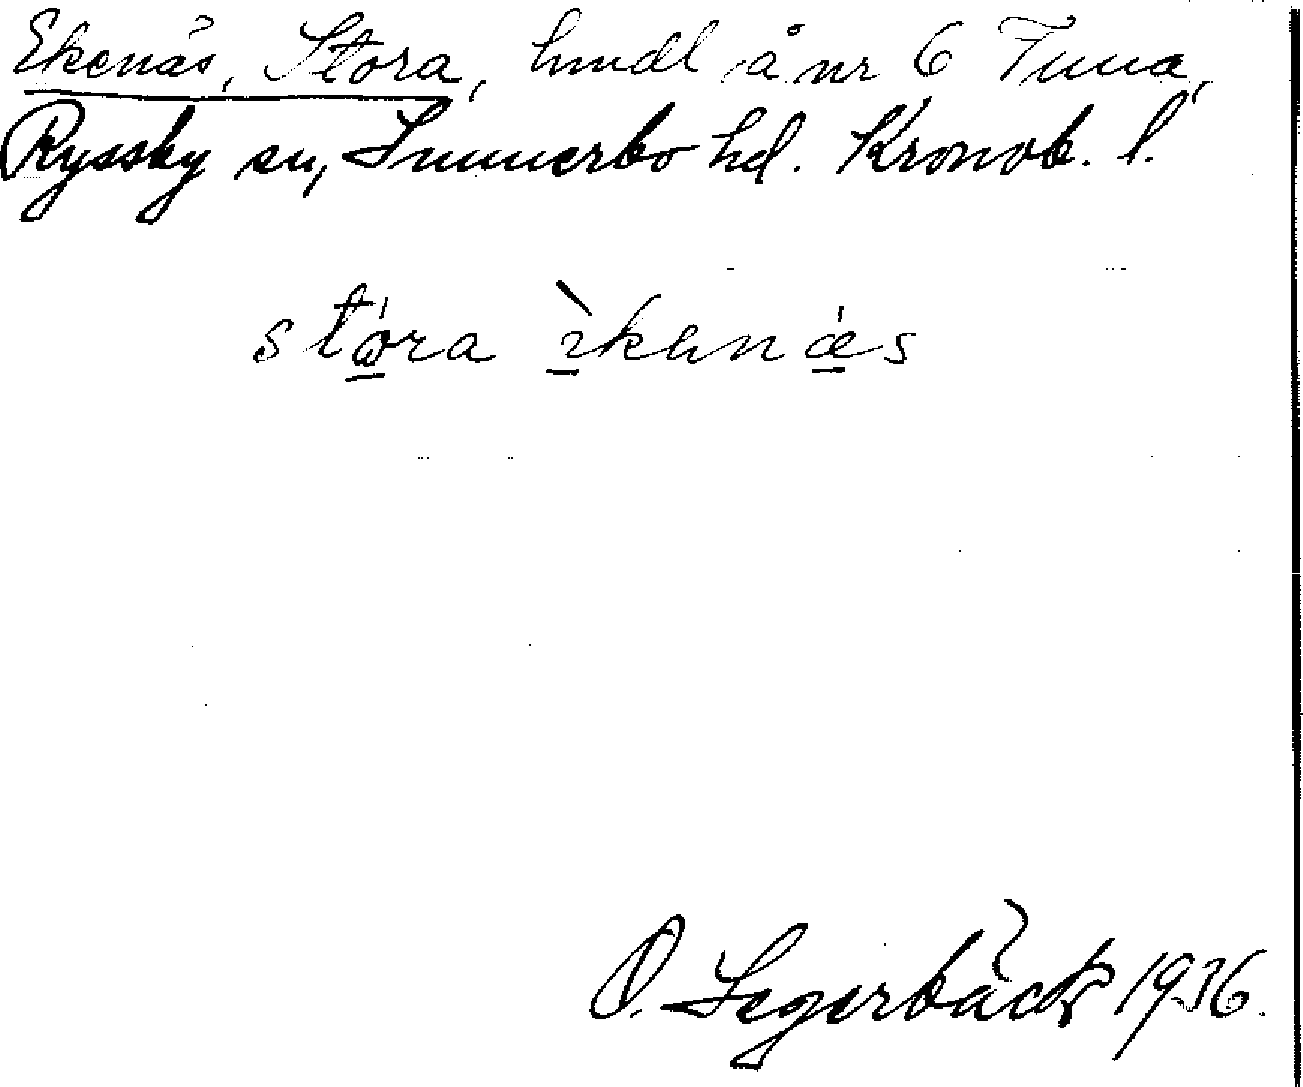 Ekenäs, Stora, hmdl å nr 6 Tuna,
Ryssby sn, Sunnerbo hd. Kronob. l.
stóra èkenǽs
O. Segerbäck 1936.